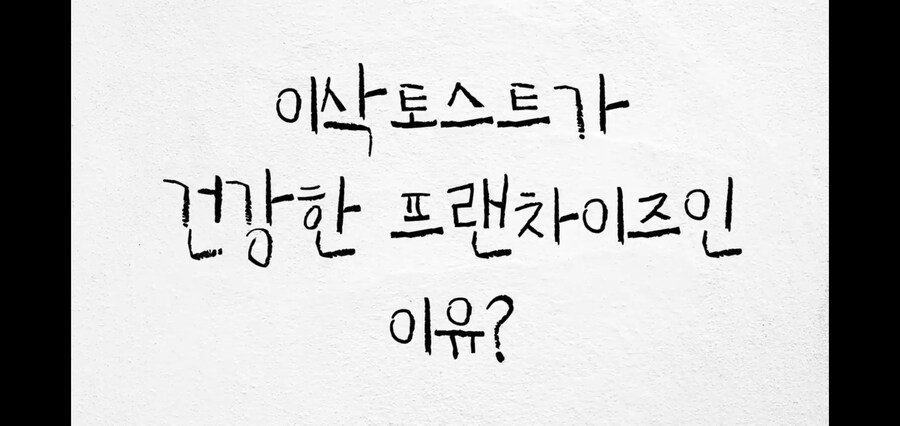 이삭토스트가
건강한 프랜차이즈인
이유?